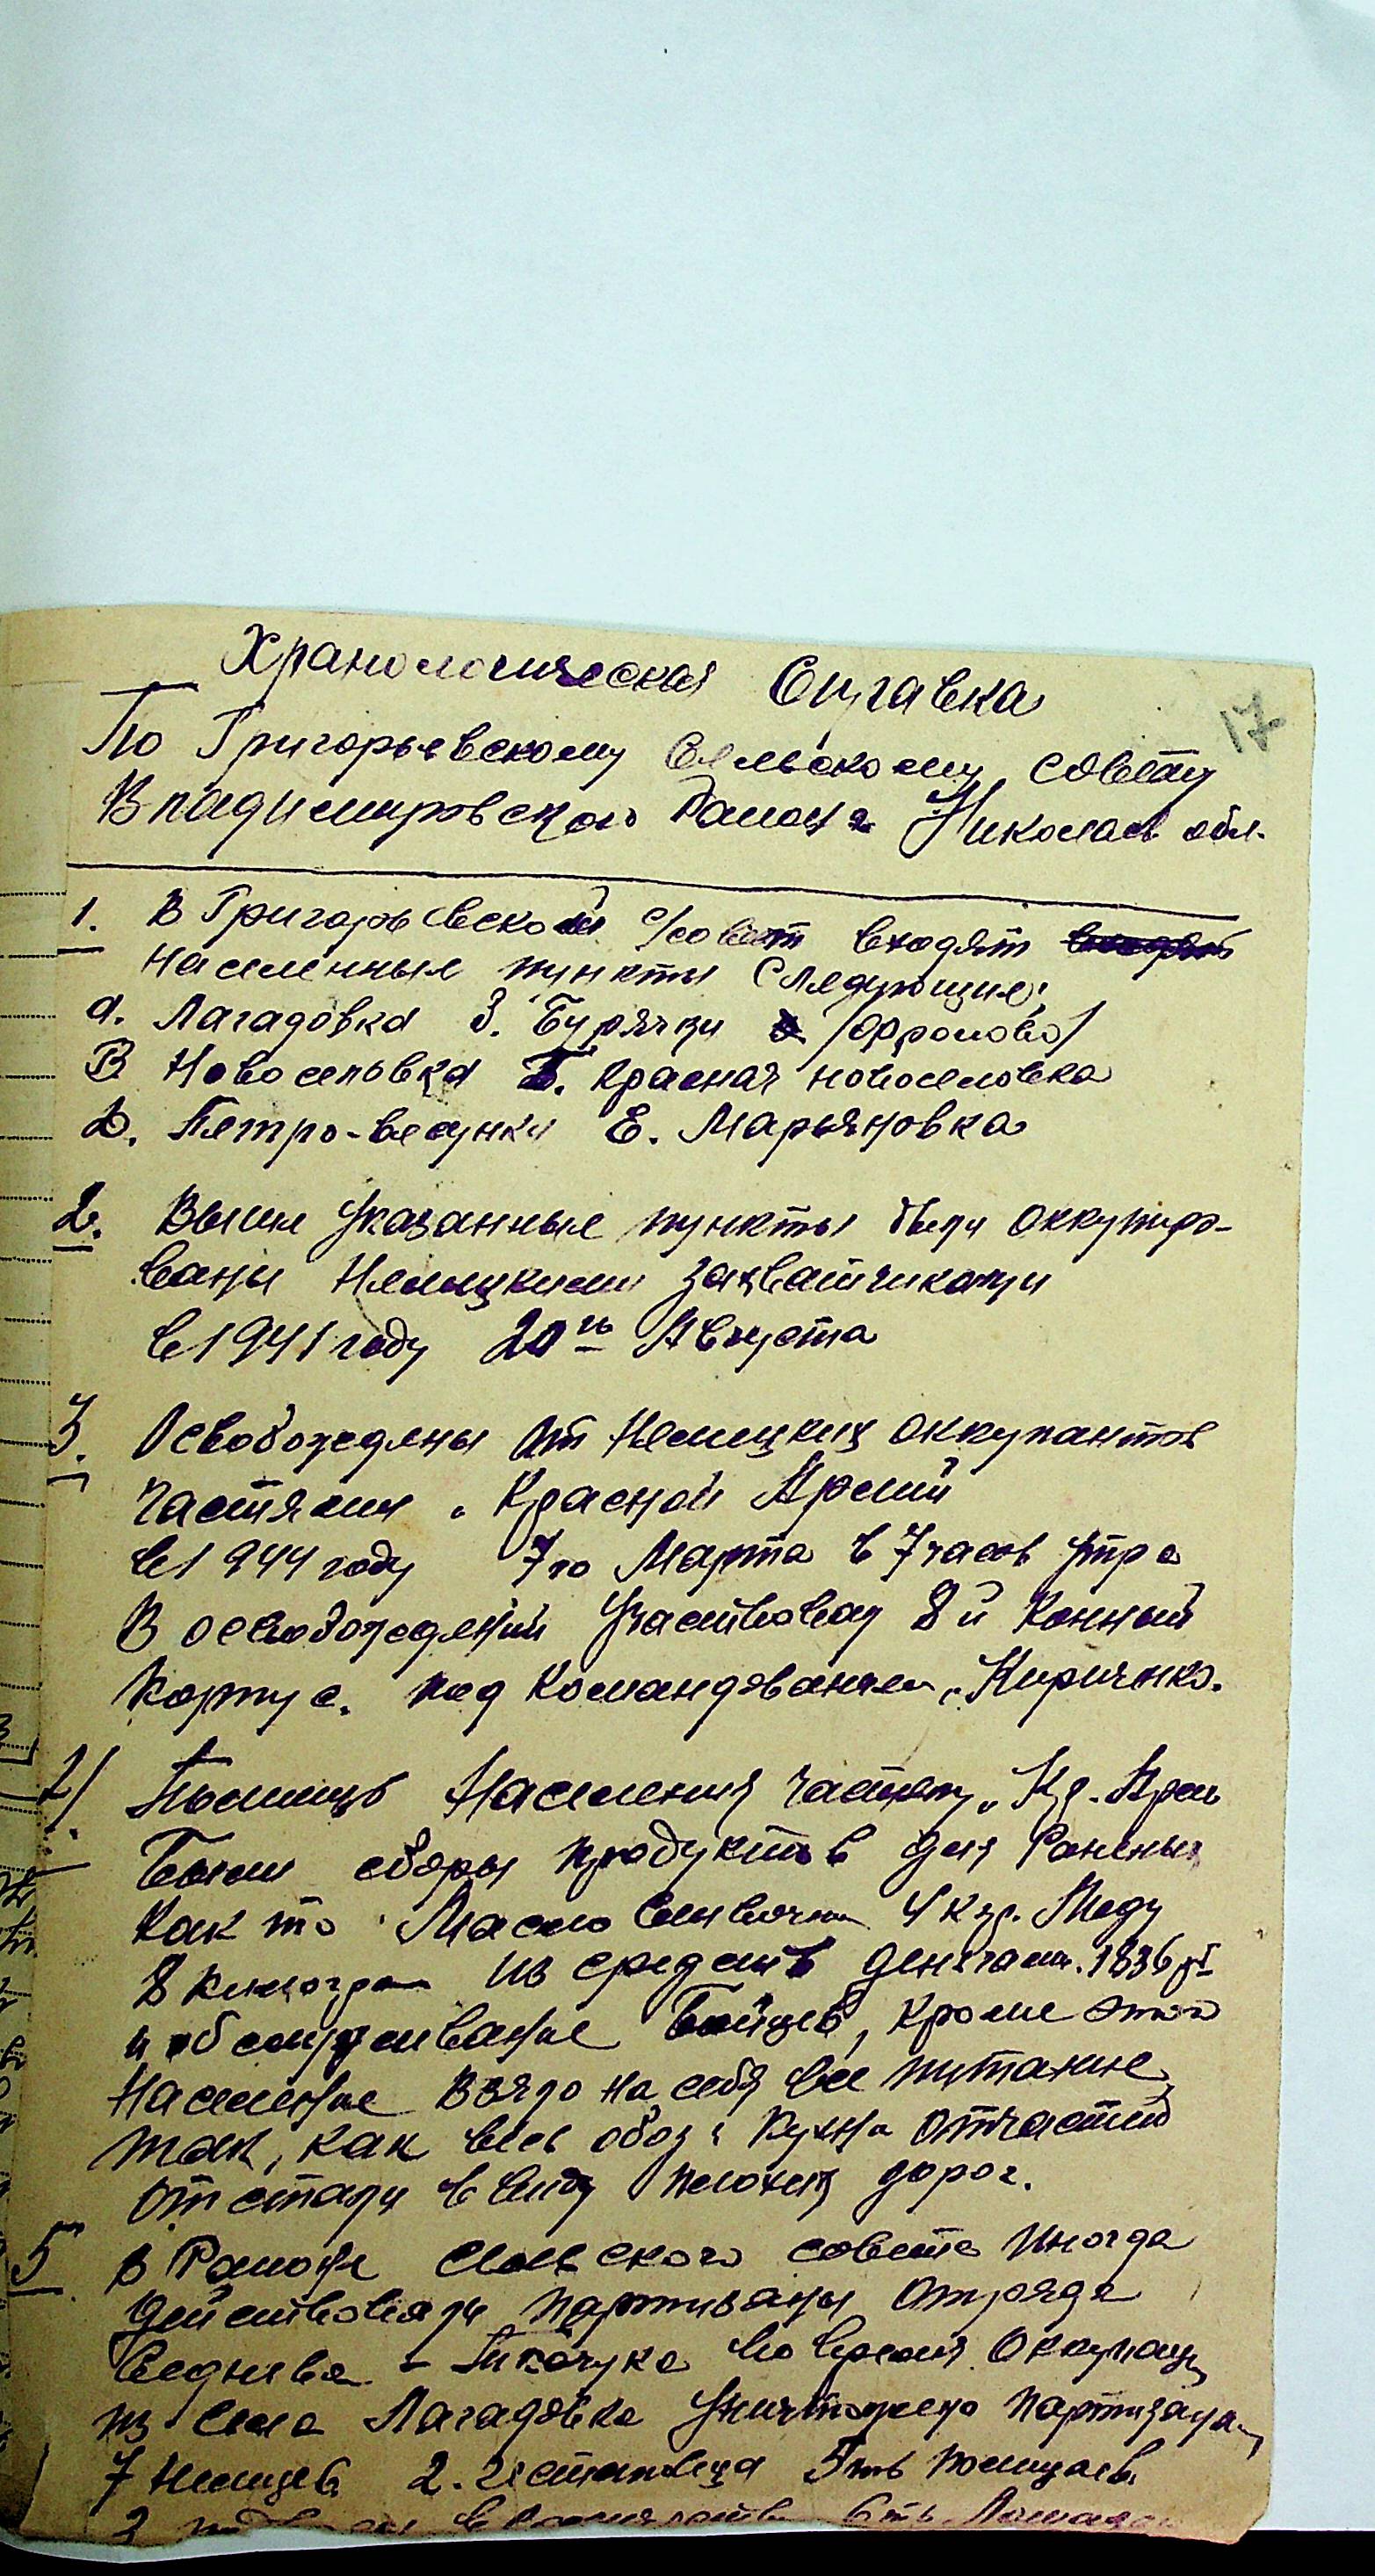 Хранологическая Справка
17
По Григорьевскому Сельскому совету
Владимировского Района Николаев обл.
1. В Григорьевской с/совет входят
населенные пункты следующие:
а. Лагадовка З. Бурячки /Фролово/
В Новоселовка Г. Красная новоселовка
Д. Петро-Висунки Е. Марьяновка
2. Выше Указанные пункты были оккупиро-
ваны Немецкими захватчиками
в 1941 году 20го Августа
3. Освобождены От Немецких оккупантов
частями "Красной Армии
в 1944 году 7го Марта в 7 часов утра
В освобождении Участвовал 8й Конный
Корпус. под Командованием "Кириченко.
4/ Помощь Населения частям "Кр. Арм
Были сборы продуктов для Раненых
Как то Масло сливочн 4 кгр. Меду
8 килограм из средств денгами. 1836 р
и обмундирование Бойцев, кроме этого
Население взяло на себя все питание
так, как весь обоз и кухня отчасти
отстали ввиду плохих дорог.
5 В Районе Сельского совета Иногда
действовали партизаны Отряда
Седнева - Ткачука Во время Оккупац
из села Лагадовка Уничтожено партизана
7 Немцев 2. гестаповца 5ть полицаев